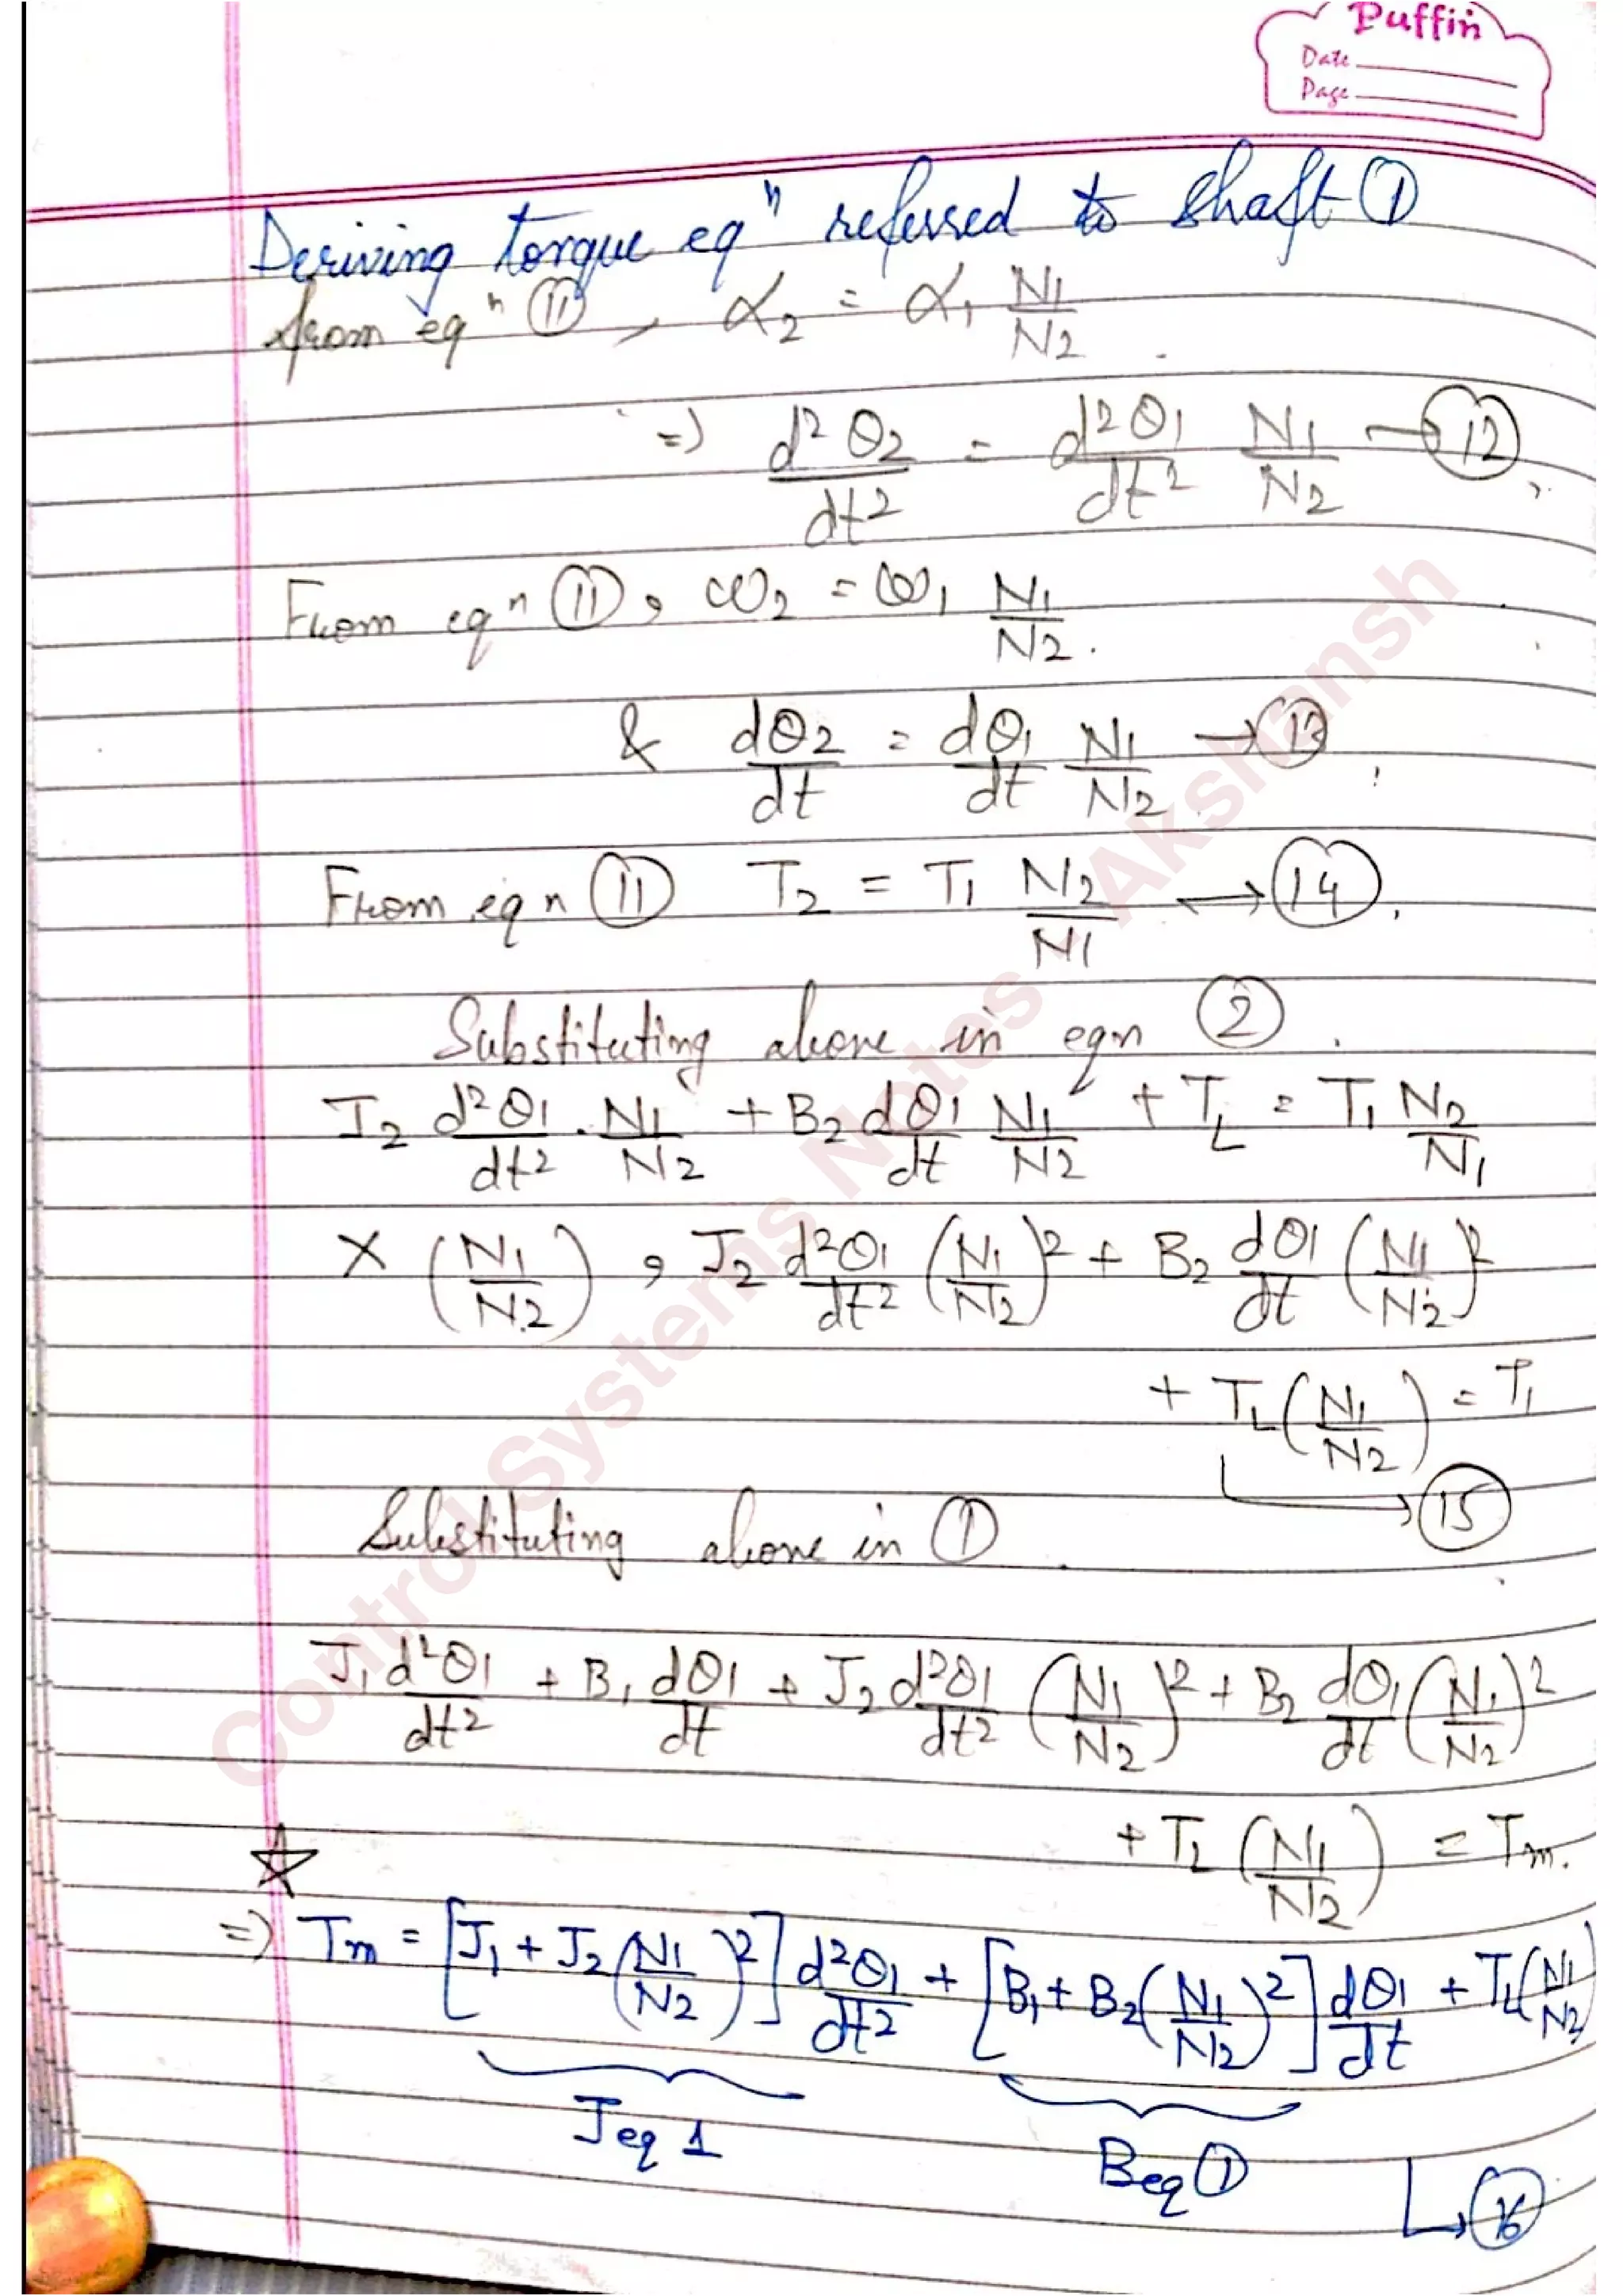 Puffin
Date
Page
Deriving torque eqⁿ referred to shaft ①
from eqⁿ ⑪, α₂ = α₁ N₁/N₂
=) d²θ₂/dt² = d²θ₁/dt² N₁/N₂ → ⑫
From eqⁿ ⑪, ω₂ = ω₁ N₁/N₂.
& dθ₂/dt = dθ₁/dt N₁/N₂ → ⑬
From eqn ⑪ T₂ = T₁ N₂/N₁ → ⑭
Substituting above in eqn ②.
J₂ d²θ₁/dt² . N₁/N₂ + B₂ dθ₁/dt N₁/N₂ + T_L = T₁ N₂/N₁
X (N₁/N₂), J₂ d²θ₁/dt² (N₁/N₂)² + B₂ dθ₁/dt (N₁/N₂)²
+ T_L (N₁/N₂) = T₁
→ ⑮
Substituting above in ①.
J₁ d²θ₁/dt² + B₁ dθ₁/dt + J₂ d²θ₁/dt² (N₁/N₂)² + B₂ dθ₁/dt (N₁/N₂)²
+ T_L (N₁/N₂) = Tm.
☆
=) Tm = [J₁ + J₂ (N₁/N₂)²] d²θ₁/dt² + [B₁ + B₂ (N₁/N₂)²] dθ₁/dt + T_L (N₁/N₂)
Jeq 1
Beq ①
→ ⑯
Control Systems Notes - Akshansh